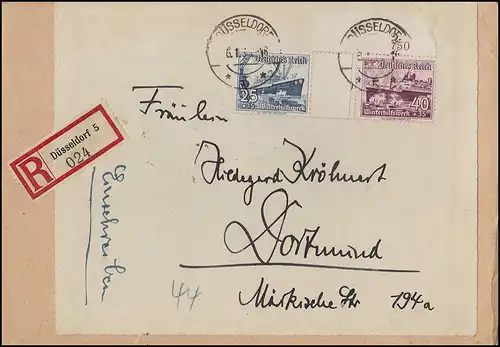 DÜSSELDORF
DÜSSELDORF
6.1.3
50
Deutsches Reich
25
+15 Winterhilfswerk
Deutsches Reich
40
+35
Winterhilfswerk
Fräulein
R
Düsseldorf 5
024
Einschreiben
Hildegard Kröhnert
Dortmund
Märkische Str 194a
44